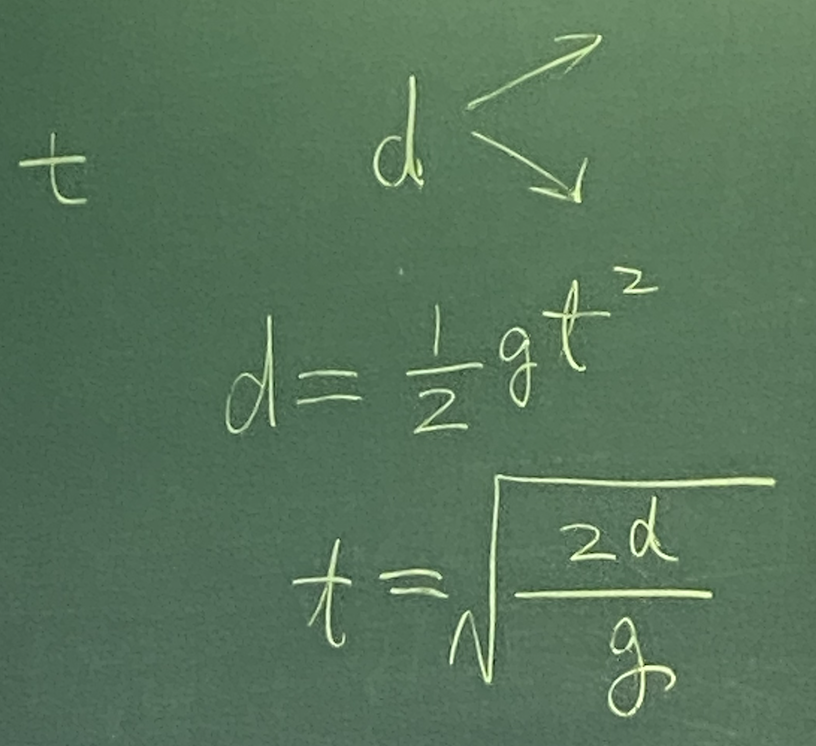 t d
d = 1/2 gt²
t = √(2d/g)